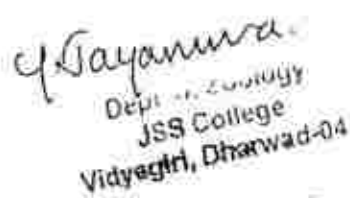 Dept. of Zoology
JSS College
Vidyagiri, Dharwad-04